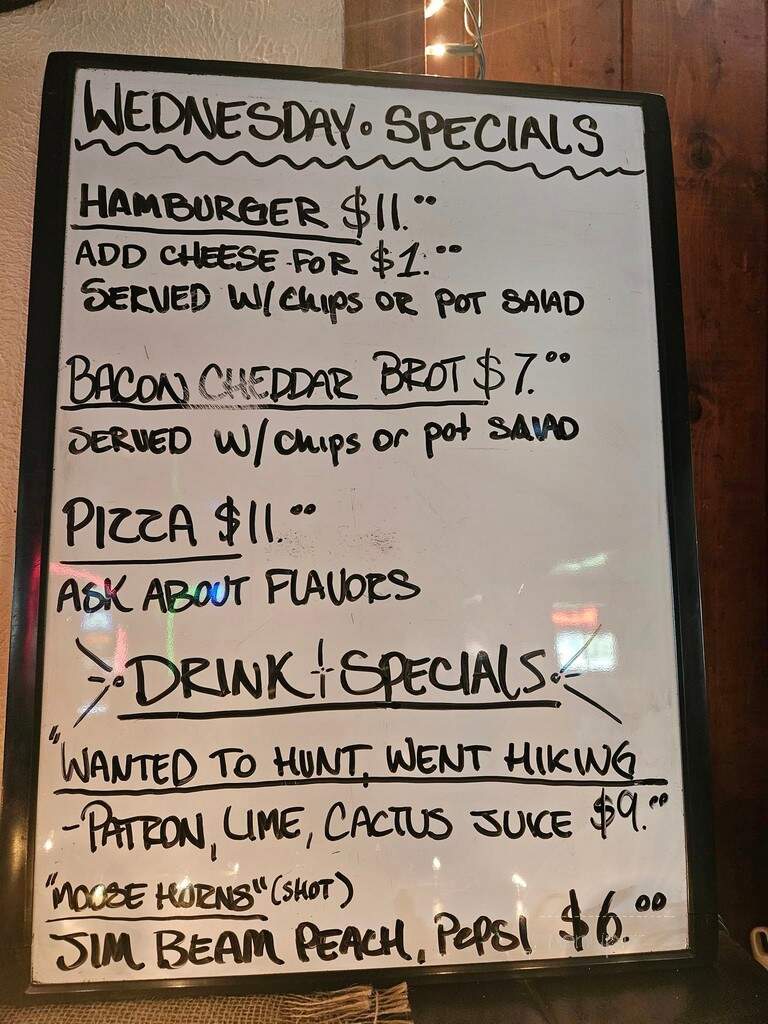 WEDNESDAY • SPECIALS
HAMBURGER $11.00
ADD CHEESE FOR $1.00
SERVED W/ CHIPS OR POT SALAD
BACON CHEDDAR BROT $7.00
SERVED W/ CHIPS OR POT SALAD
PIZZA $11.00
ASK ABOUT FLAVORS
DRINK SPECIALS
"WANTED TO HUNT, WENT HIKING
-PATRON, LIME, CACTUS JUICE $9.00
"MOOSE HORNS" (SHOT)
JIM BEAM PEACH, PEPSI $6.00